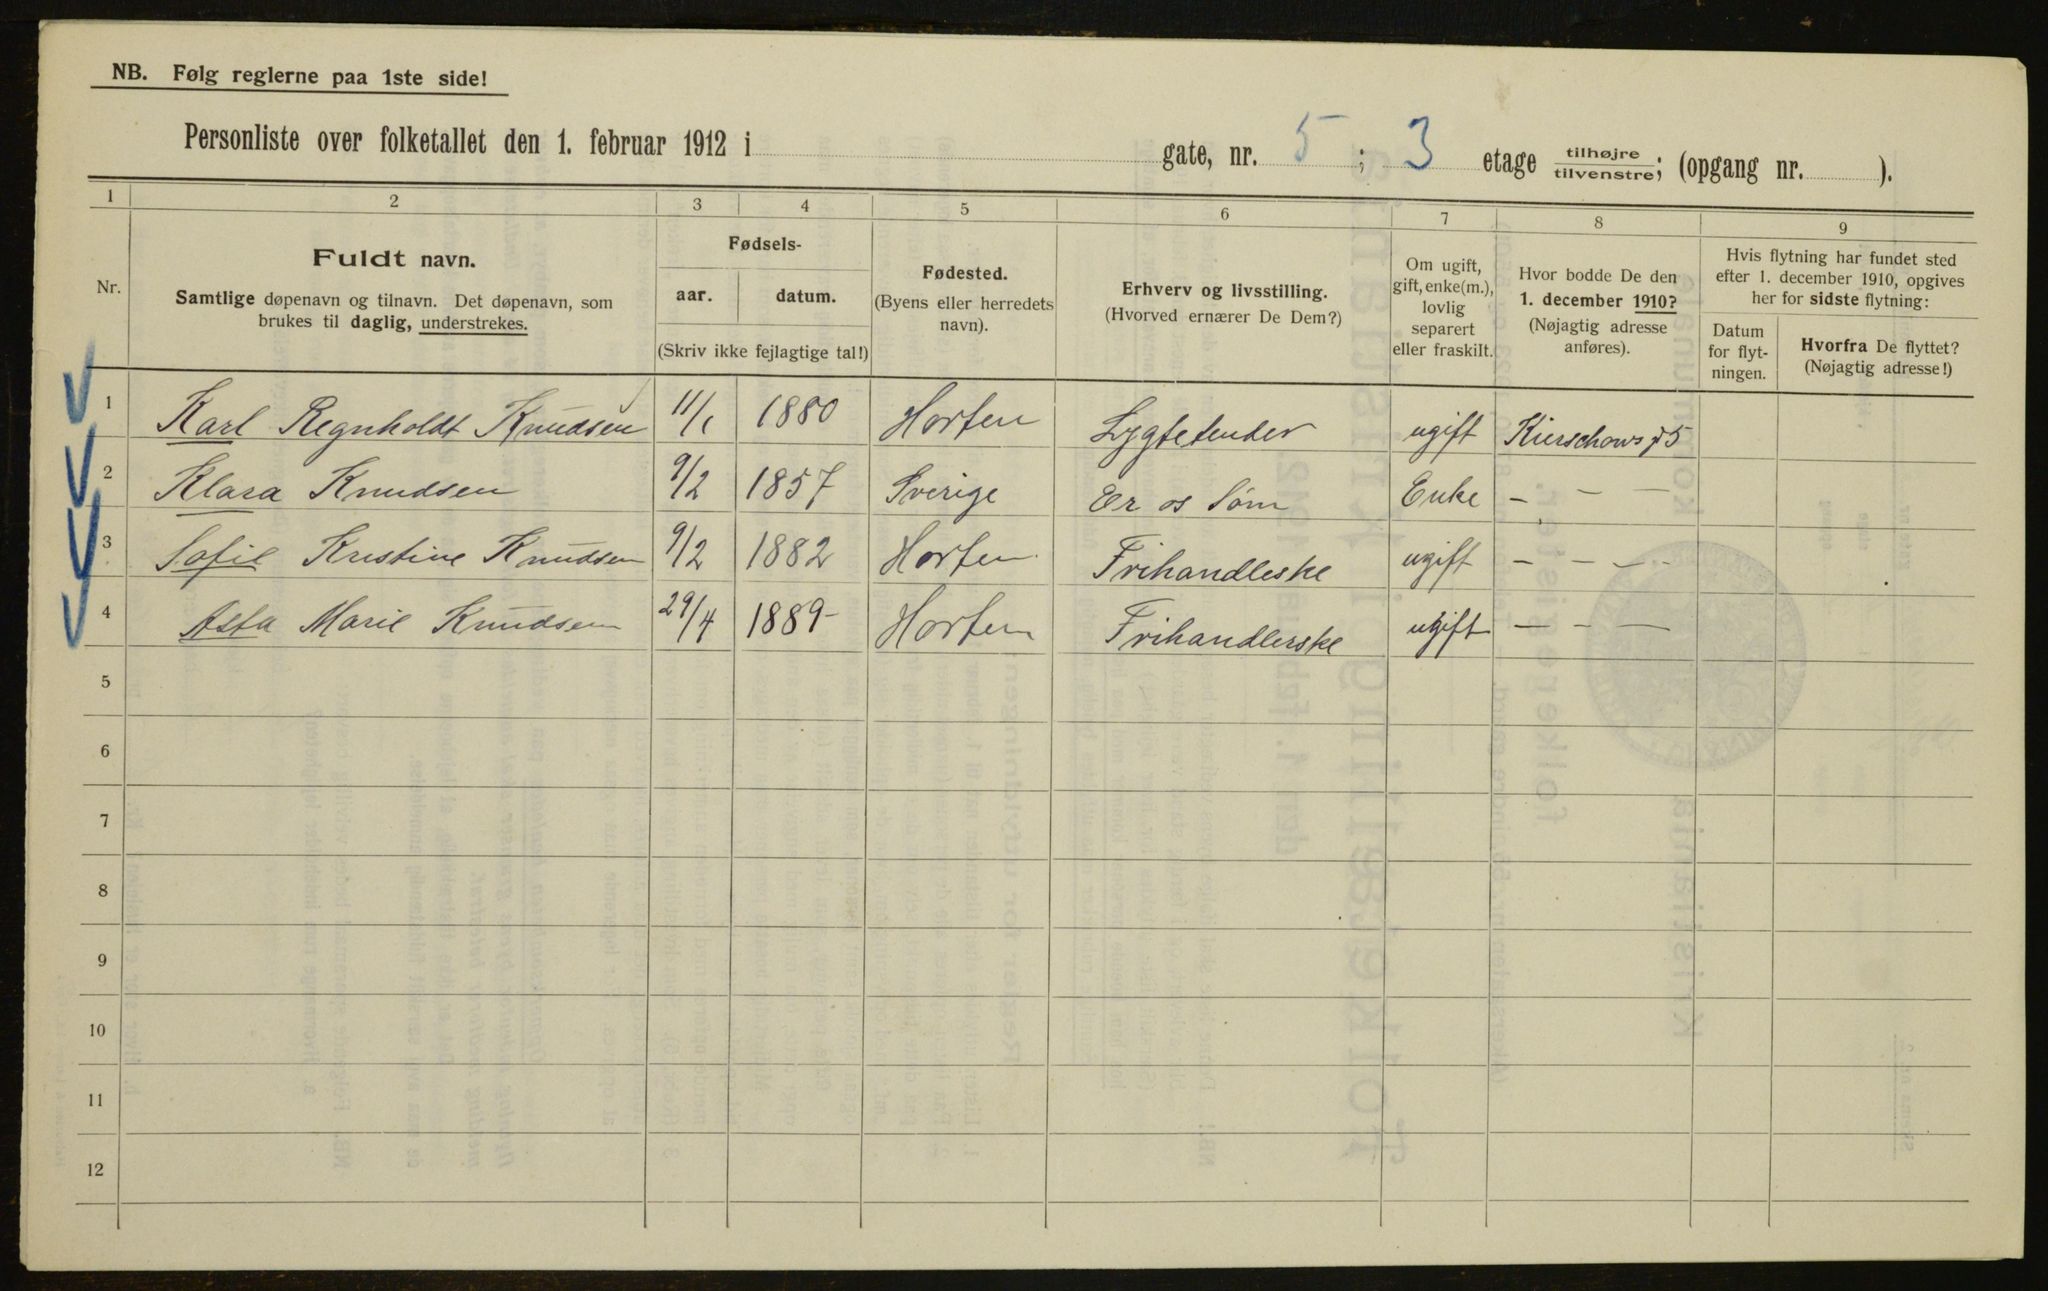 NB. Følg reglerne paa 1ste side!
Personliste over folketallet den 1. februar 1912 i gate, nr. 5 ; 3 etage tilhøjre tilvenstre; (opgang nr. ).
1 2 3 4 5 6 7 8 9
Nr.
Fuldt navn.
Samtlige døpenavn og tilnavn. Det døpenavn, som
brukes til daglig, understrekes.
Fødsels-
aar. datum.
(Skriv ikke fejlagtige tal!)
Fødested.
(Byens eller herredets
navn).
Erhverv og livsstilling.
(Hvorved ernærer De Dem?)
Om ugift,
gift, enke(m.),
lovlig
separert
eller fraskilt.
Hvor bodde De den
1. december 1910?
(Nøjagtig adresse
anføres).
Hvis flytning har fundet sted
efter 1. december 1910, opgives
her for sidste flytning:
Datum
for flyt-
ningen.
Hvorfra De flyttet?
(Nøjagtig adresse!)
1 Karl Regnholdt Knudsen 11/1 1880 Horten Lygtetender ugift Kierschows g 5
2 Klara Knudsen 9/2 1857 Sverige Er os Søm Enke - - -
3 Sofie Kristine Knudsen 9/2 1882 Horten Frihandleske ugift - - - -
4 Asta Marie Knudsen 29/4 1889 Horten Frihandlerske ugift - - -
5
6
7
8
9
10
11
12